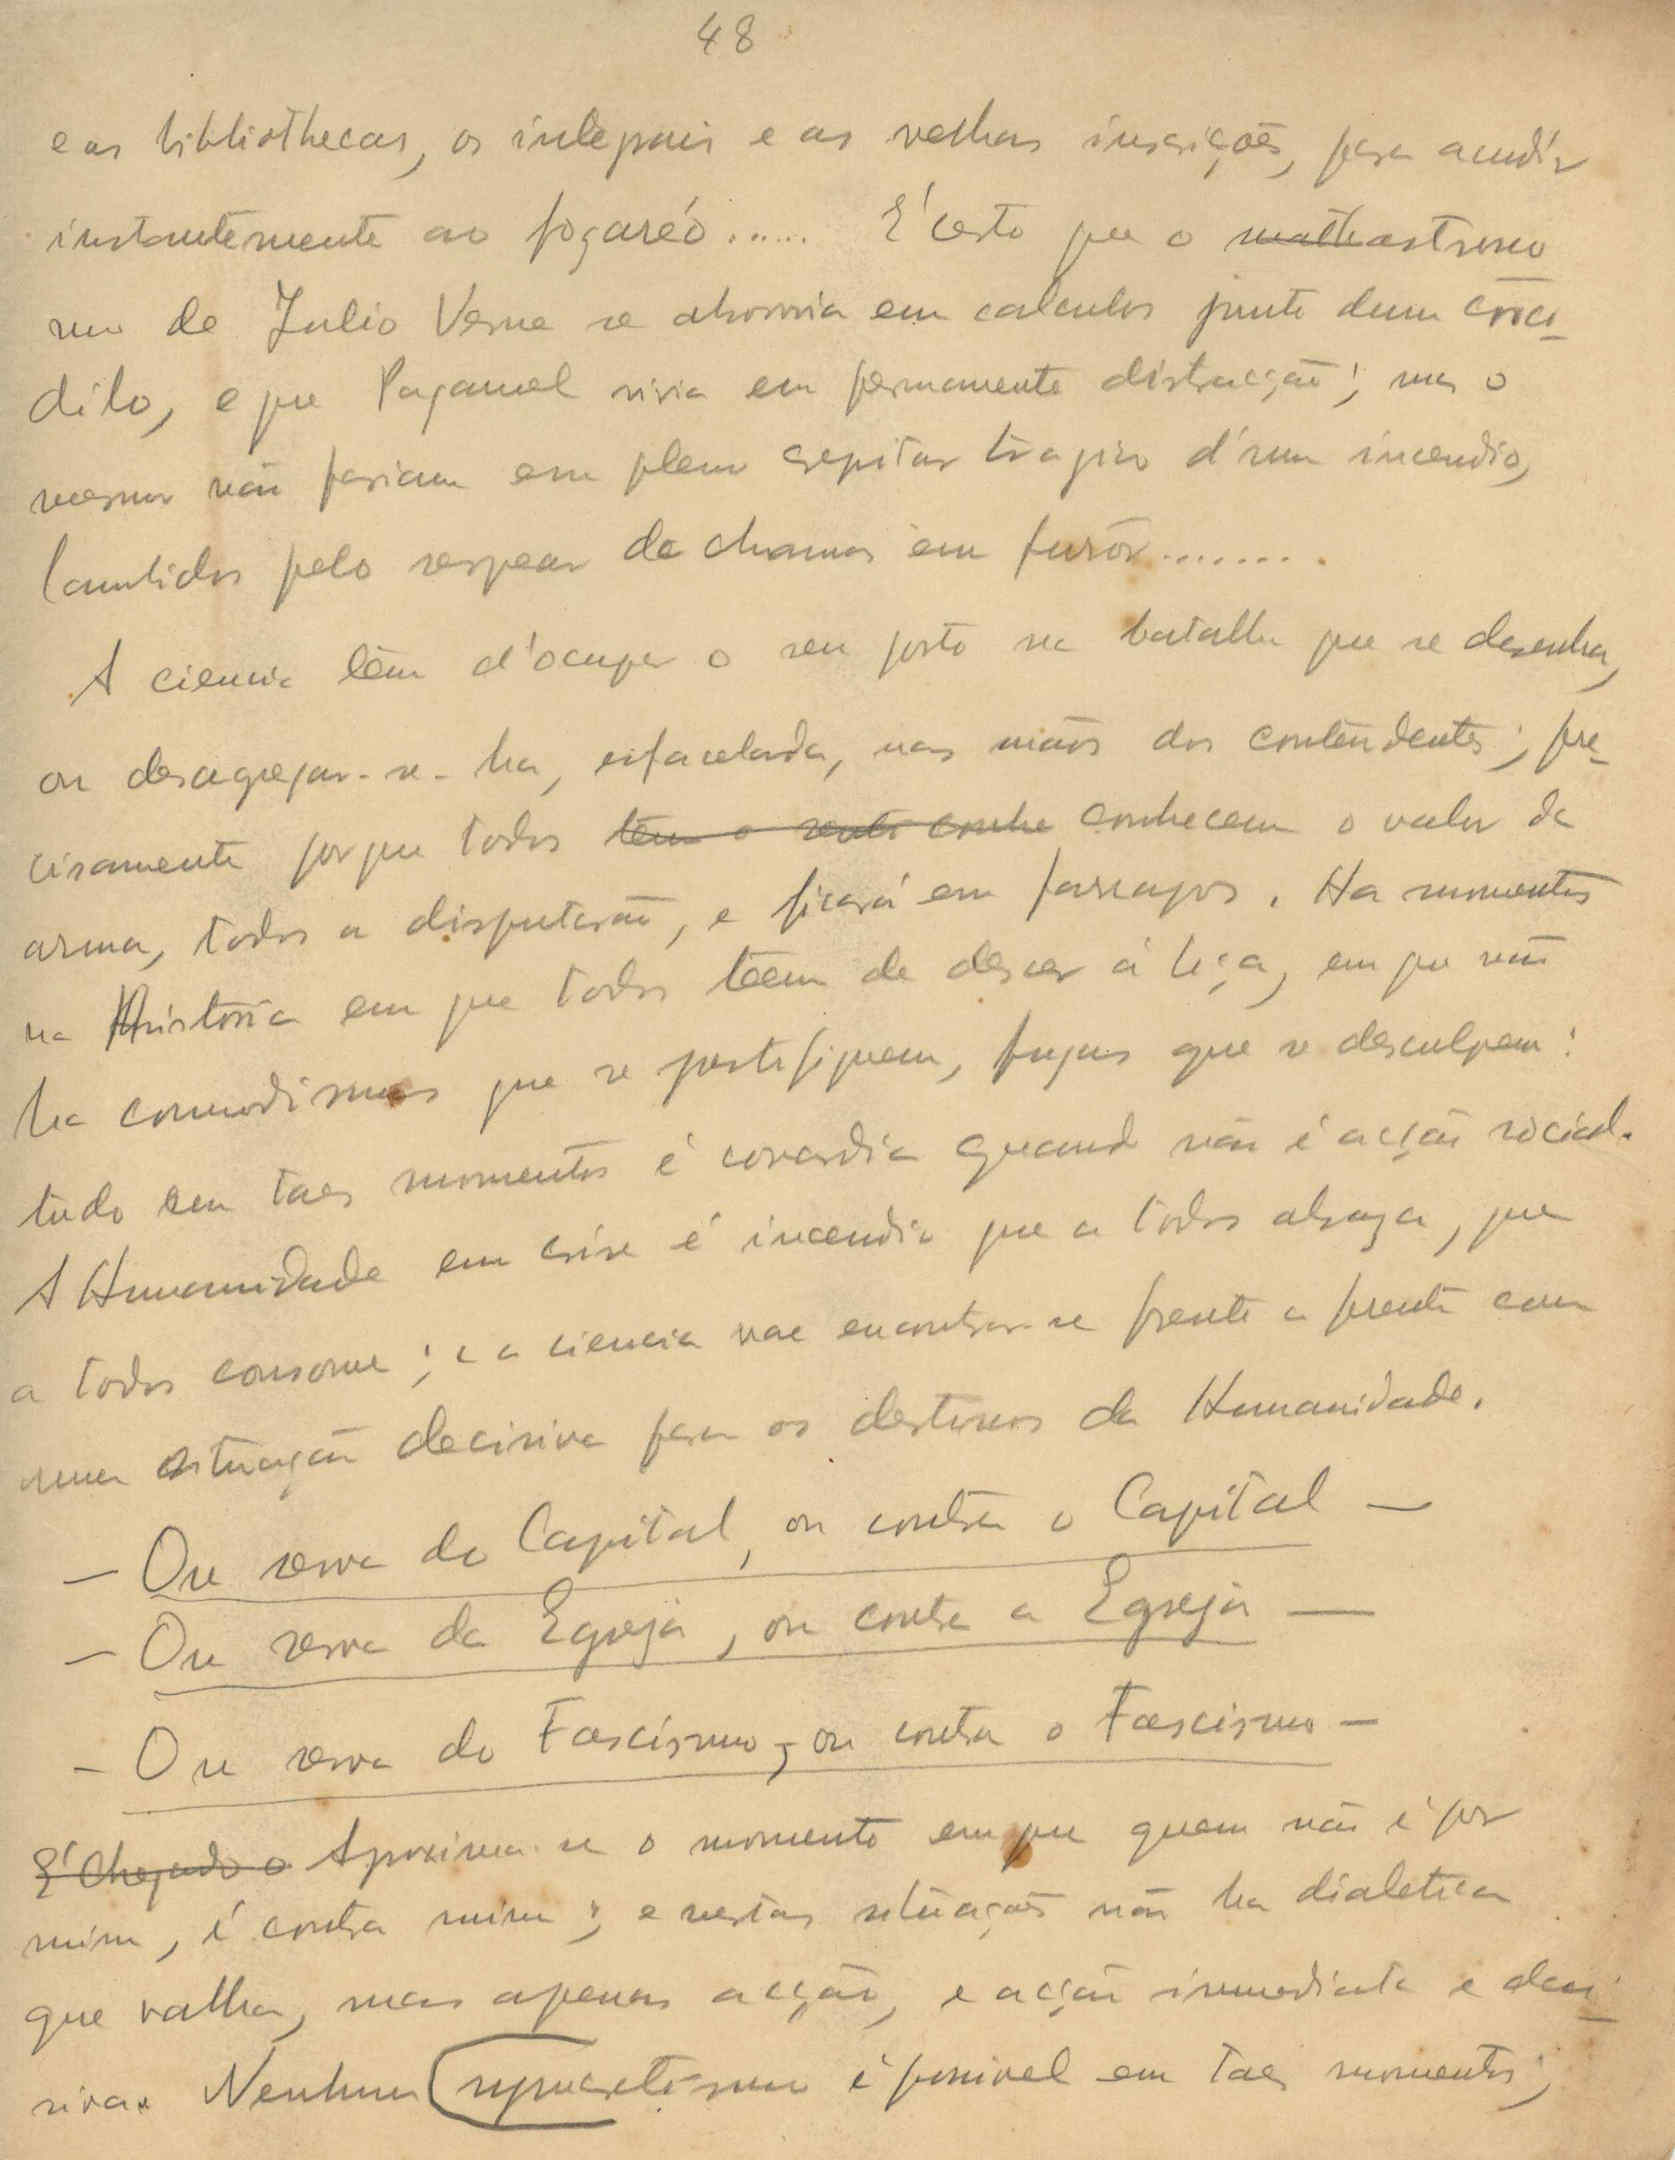 48
e as bibliothecas, os integrais e as velhas inscrições, para acudir
instantemente ao fogaréo...... É certo que o mathastrono
mo de Julio Verne se absorvia em calculos junto dum croco-
dilo, e que Paganel vivia em permanente distracção; mas o
mesmo não fariam em pleno crepitar tragico d'um incendio,
lambidos pelo serpear de chamas em furôr........
A ciencia têm d'ocupar o seu posto na batalha que se desenha,
ou desagregar-se-ha, esfacelada, nas mãos dos contendentes; pre-
cisamente porque todos têm o conhe conhecem o valor da
arma, todos a disputarão, e ficará em farrapos. Ha momentos
na Historia em que todos têem de descer á liça, em que não
ha comodismos que se justifiquem, fugas que se desculpem:
tudo em taes momentos é covardia quando não é acção social.
A Humanidade em crise é incendio que a todos abraza, que
a todos consome; e a ciencia vae encontrar-se frente a frente com
uma situação decisiva para os destinos da Humanidade.
— Ou serva do Capital, ou contra o Capital —
— Ou serva da Egreja, ou contra a Egreja —
— Ou serva do Fascismo, ou contra o Fascismo —
É chegado o Aproxima-se o momento em que quem não é por
mim, é contra mim; e nestas situações não ha dialetica
que valha, mas apenas acção, e acção immediata e deci-
siva. Nenhum é possivel em taes momentos;